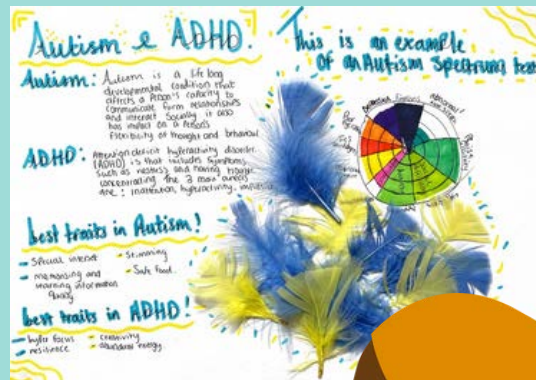 Autism & ADHD.
Autism: Autism is a life long
developmental condition that
affects a Person's capacity to
communicate form relationships
and interact Socially it also
has impact on a Person's
flexibility of thought and behaviour
ADHD: Attention deficit hyperactivity disorder
(ADHD) is that includes symptoms
such as and having trouble
concentrating The 3 main areas
are: inattention, hyperactivity,
best traits in Autism!
- Special interest
- Stimming
- memorising and
learning information
- Safe food.
best traits in ADHD!
- hyper focus
- creativity
- resilience
- energy
This is an example
of an Autism Spectrum test